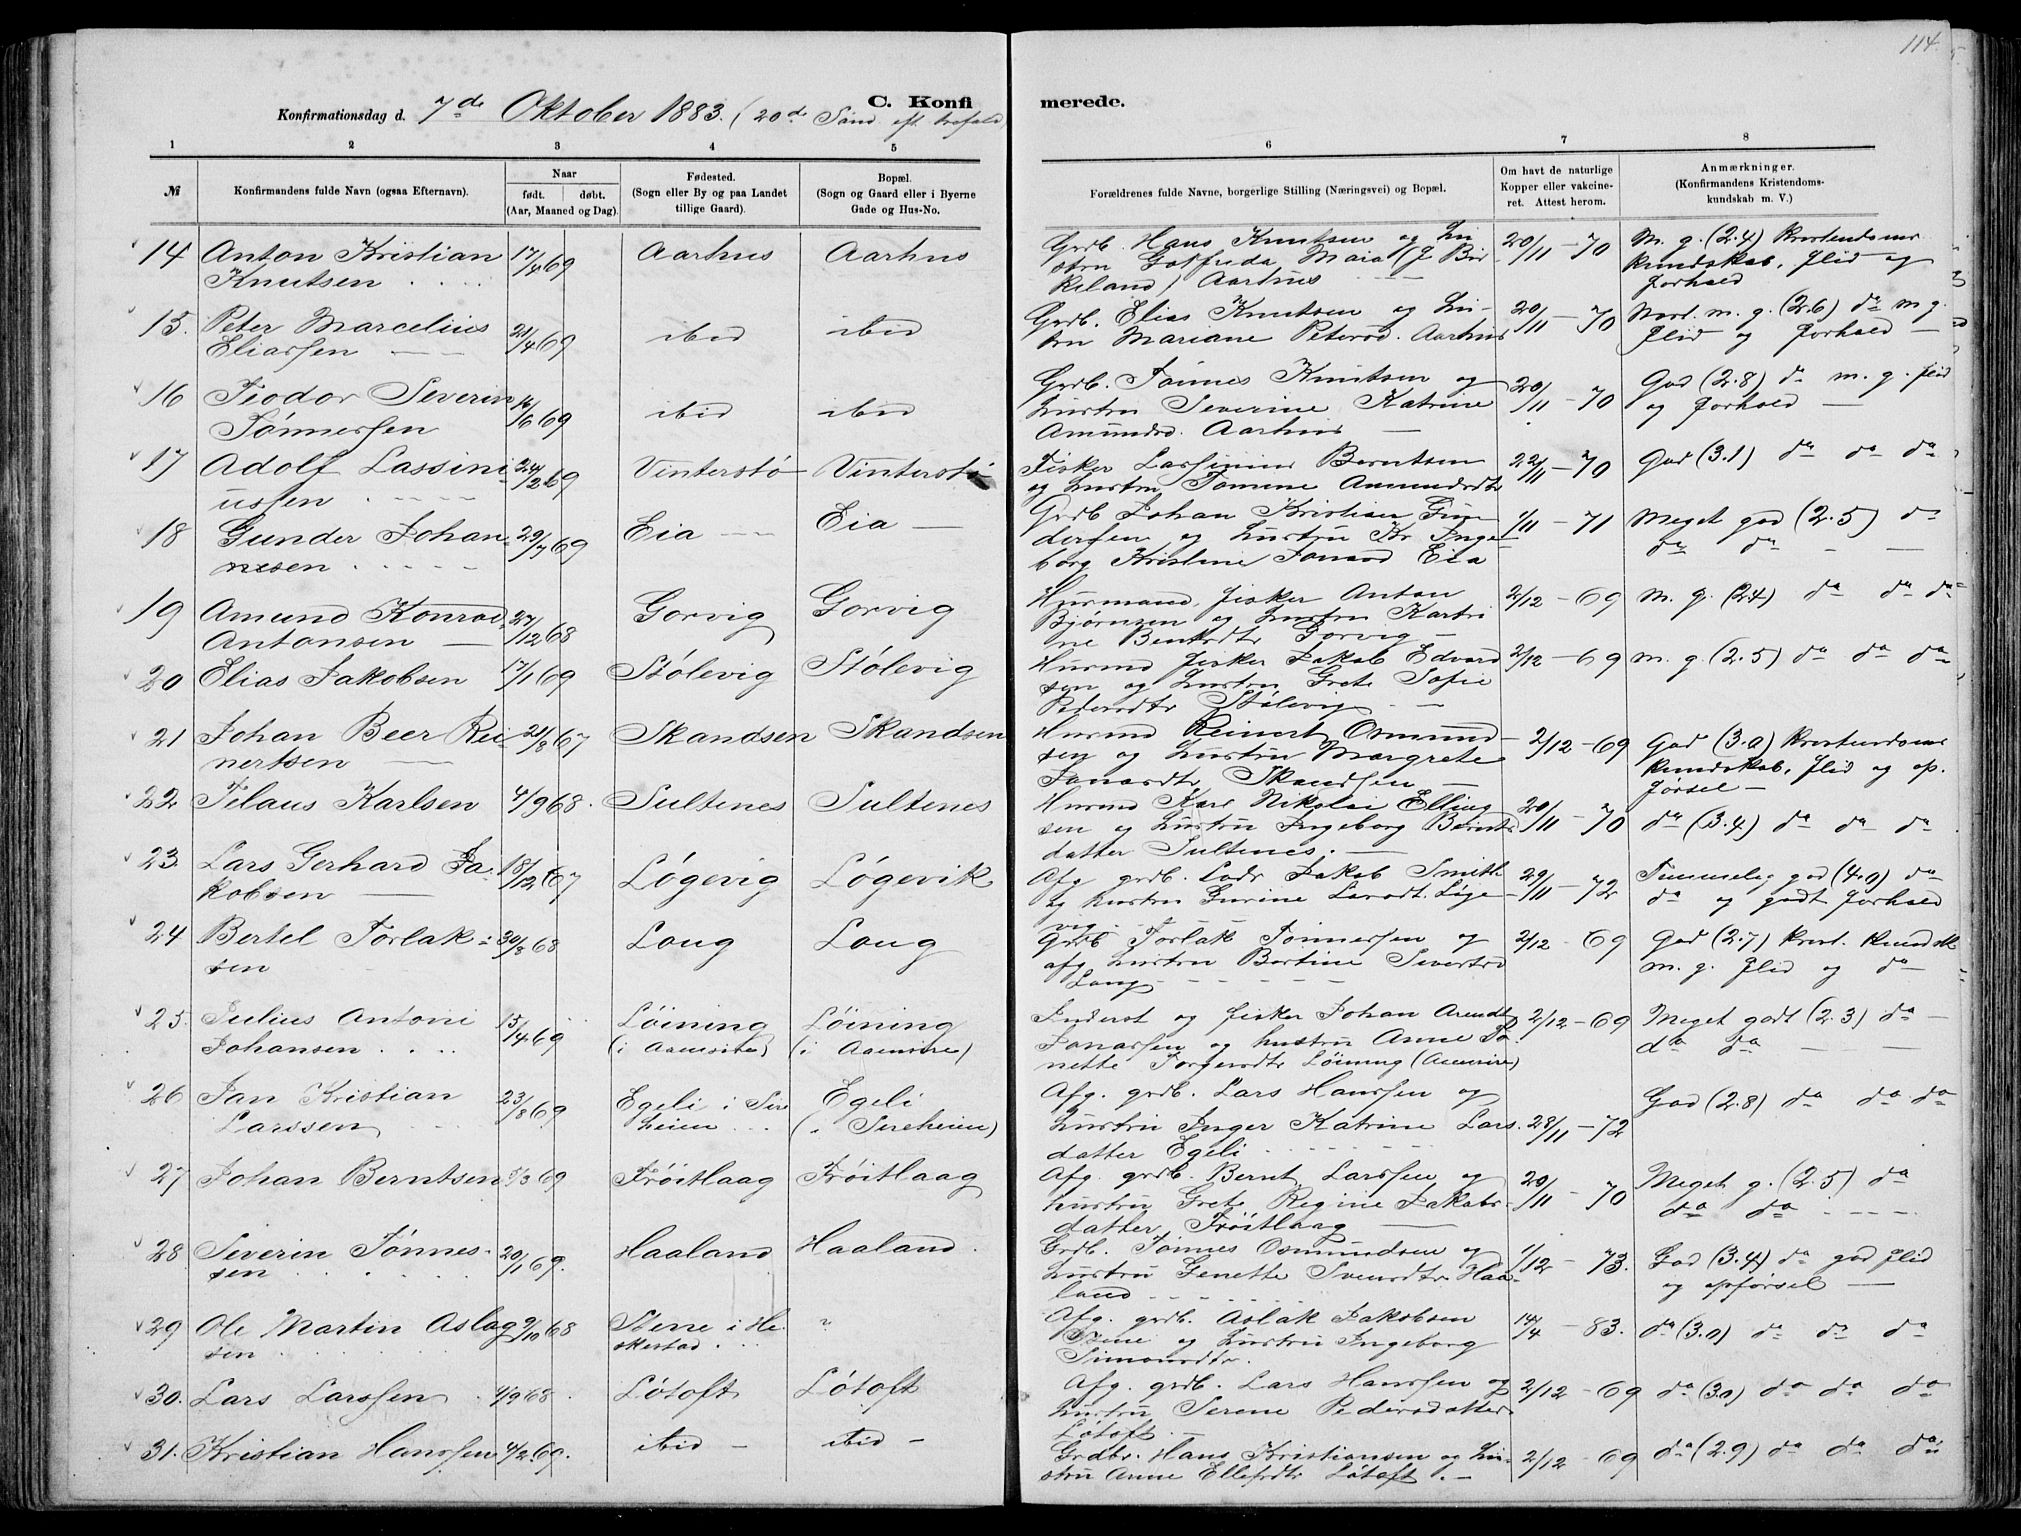 114.
Konfirmationsdag d. 7de Oktober 1883. (20de Sønd. eft. trefold.)
C. Konfi
merede.
1 2 3 4 5
6 7 8
№
Konfirmandens fulde Navn (ogsaa Efternavn).
Naar
født. døbt.
(Aar, Maaned og Dag).
Fødested.
(Sogn eller By og paa Landet
tillige Gaard).
Bopæl.
(Sogn og Gaard eller i Byerne
Gade og Hus-No.
Forældrenes fulde Navne, borgerlige Stilling (Næringsvei) og Bopæl.
Om havt de naturlige
Kopper eller vakcine-
ret. Attest herom.
Anmærkninger.
(Konfirmandens Kristendoms-
kundskab m. V.)
14 Anton Kristian 17/4 69 Aarhus Aarhus
Knutsen
Grdb. Hans Knutsen og Hu- 20/11 - 70 M. g. (2.4) Kristendoms
stru Gotfreda Maia (f. Bir kundskab, flid og
keland) Aarhus forhold
15. Peter Marcelius 21/4 69 ibid ibid
Eliassen
Grdb. Elias Knutsen og Hu- 20/11 - 70 Next. m. g. (2.6) do m. g.
stru Mariane Petersd. Aarhus flid og forhold
16 Teodor Severin 16/6 69 ibid ibid
Tønnessen
Grdb. Tønnes Knutsen og 20/11 - 70 God (2.8) do m. g. flid
hustru Severine Katrine og forhold
Amundsd. Aarhus
17 Adolf Lassini 24/2 69 Vinterstø Vinterstø
ussen
Fisker Lassinius Berntsen 22/11 - 70 God (3.1) do do do
og hustru Tomine Amundsdtr
18 Gunder Johan 29/7 69 Eia Eia
nesen
Grdb Johan Kristian Gun 1/11 - 71 Meget god (2.5) do
dersen og hustru Kr Inge do do
borg Kristine Jonasd Eia
19 Amund Konrad 27/12 68 Gorvig Gorvig
Antonsen
Husmand, fisker Anton 2/12 - 69 m. g. (2.4) do do do
Bjørnsen og hustru Katri
ne Bentsdtr Gorvig
20 Elias Jakobsen 17/1 69 Stølevig Stølevig
Husmd fisker Jakob Edvard 2/12 - 69 m. g. (2.5) do do do
sen og hustru Grete Sofie
Pedersdtr Stølevig
21 Johan Beer Rei- 21/8 67 Skandsen Skandsen
nertsen
Husmd Reinert Osmund- 2/12 - 69 God (3.0) Kristendoms
sen og hustru Margrete kundskab, flid og op.
Jonasdtr, Skandsen førsel
22 Telaus Karlsen 4/9 68. Sultenes Sultenes
Husmd Karl Nikolai Elling 20/11 - 70 do (3.4) do do do
sen og hustru Ingeborg Bernts
datter Sultenes.
23. Lars Gerhard Ja- 18/12 67 Løgevig Løgevik
kobsen
Afg grdb. Lods Jakob Smith 29/11 - 72 Temmelig god (4.0) do
og hustru Gurine Larsdt. Løge- do og godt forhold
vig
24 Bertel Torlak- 30/3 68 Loug Loug
sen
Grdb Torlak Tønnessen og 2/12 - 69 God (2.7) krist. kundsk
afg hustru Bertine Sivertsd m. g. flid og do
Loug
25. Julius Antoni 15/4 69 Løining Løining
Johansen (i Aaensire) (i Aaensire)
Inderst og fisker Johan Arendt 2/12 - 69 Meget godt (2.3) do
Jonassen og hustru Anne To do do
nette Torgersdtr Løining (Aaensire)
26 Jan Kristian 23/8 69 Egeli i Sire Egeli
Larssen heien (i Sireheien)
Afg. grdb. Lars Hanssen og God (2.8) do do do
hustru Inger Katrine Lars. 28/11 - 72
datter Egeli
27 Johan Berntsen 5/3 69 Frøitlaag Frøitlaag
Afg. grdb. Bernt Larssen og 20/11 - 70 Meget g. (2.5) do
hustru Grete Regine Jakobs- do do
datter, Frøitlaag
28 Severin Tønnes- 20/1 69. Haaland Haaland.
sen
Grdb. Tønnes Osmundsen og 1/12 - 73. God (3.4) do god flid
hustru Genette Svensdtr. Haa- og opførsel
land
29 Ole Martin Aslag 9/10 68 Stene i He. "
sen skestad.
Afg. grdb. Aslak Jakobsen 14/4 - 83. do (3.0) do do do
Stene og hustru Ingeborg
Simonsdtr.
30. Lars Larssen 4/9 68 Løtoft Løtoft
Afg. grdb. Lars Hanssen og 2/12 - 69 do (3.0) do do do
hustru Serene Pedersdatter
Løtoft
31. Kristian Hanssen 4/2 69. ibid ibid
Grdbr. Hans Kristiansen og Hu- 2/12 - 69 do (2.9) do do do
stru Anne Ellefsdtr Løtoft.